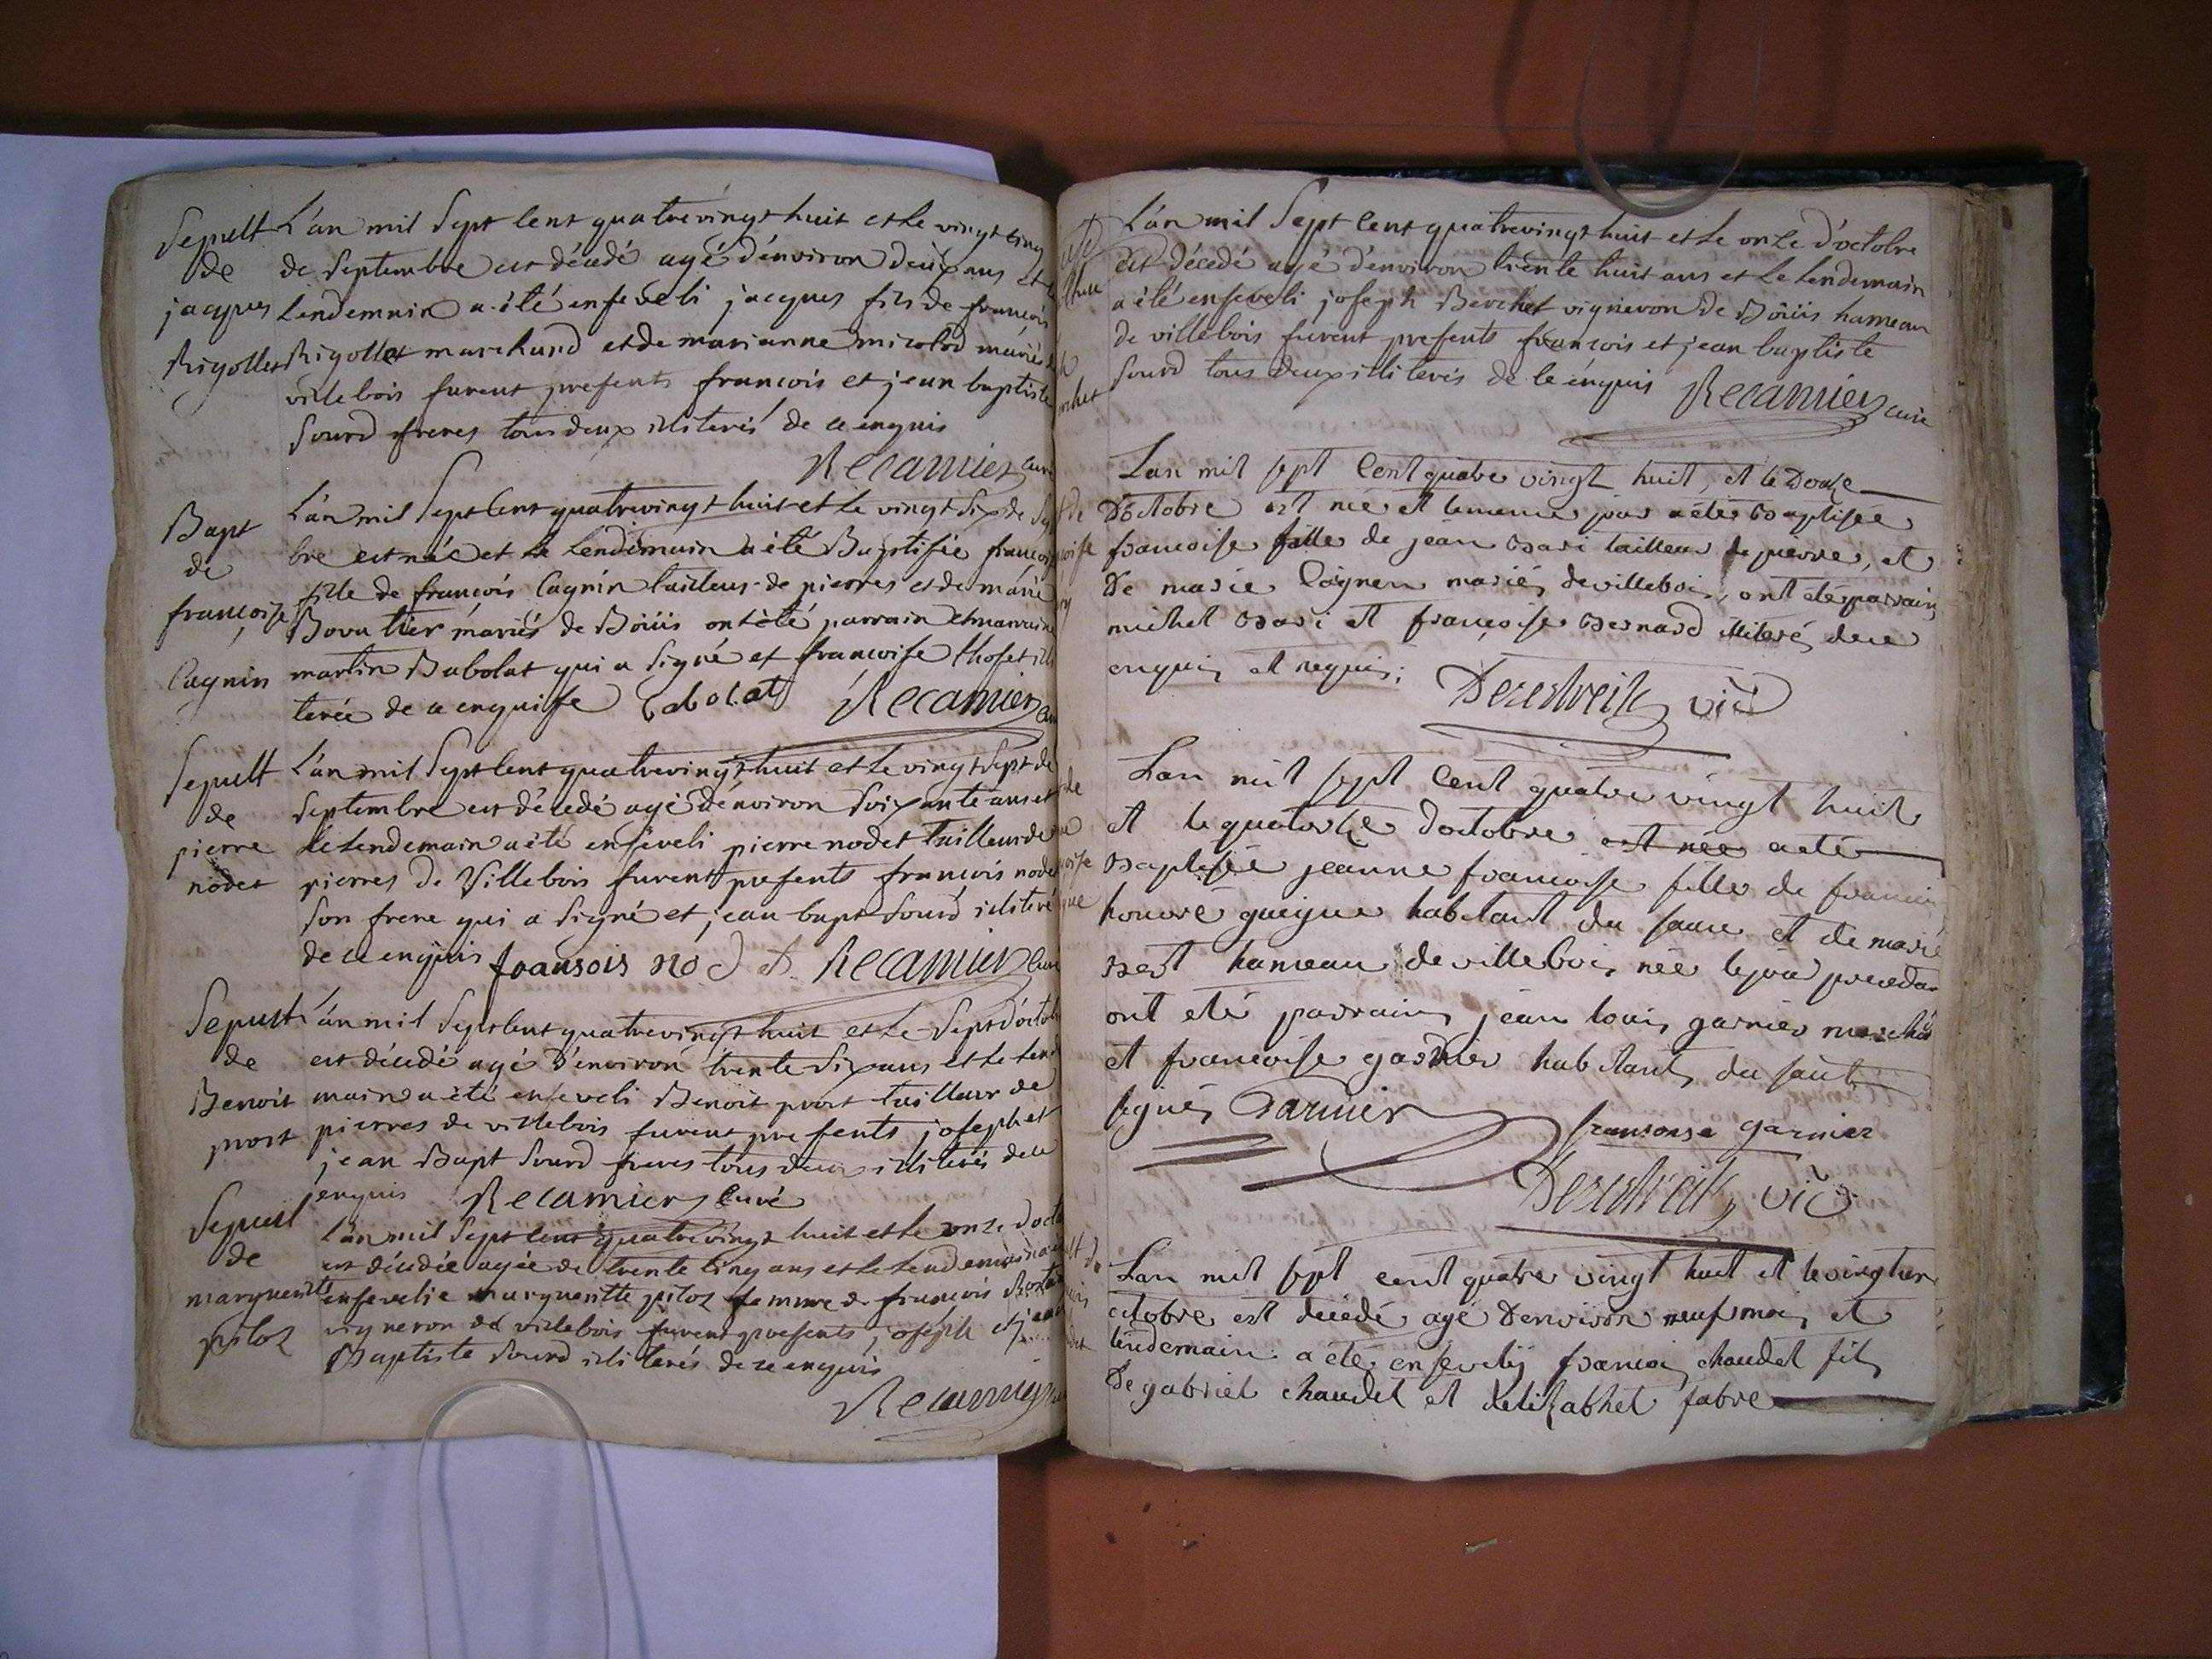 Sepult
de
jacques
Rigollet
L'an mil Sept Cent quatrevingt huit et le vingt cinq
de Septembre est décédé agé d'environ deux ans et le
Lendemain a été enseveli jacques fils de francois
Rigollet marchand et de marianne micolod mariés
villebois furent presents francois et jean baptiste
Sourd freres tous deux illiterés de ce enquis
Recamier Curé
Bapt
de
françoise
Cagnin
L'an mil Sept Cent quatrevingt huit et le vingt Six de Sep
bre est née et le Lendemain a été Baptisée françoise
fille de françois Cagnin tailleur de pierres et de marie
Bovu tier mariés de Boüis ont été parrain et marraine
martin Babolat qui a Signé et françoise thoset illi
terée de ce enquise Babolat Recamier Curé
Sepult
de
pierre
nodet
L'an mil Sept Cent quatrevingt huit et le vingt Sept de
Septembre est décedé agé d'environ Soixante ans et
le Lendemain a été enseveli pierre nodet Tailleur de
pierres de Villebois furent presents francois nodet
Son frere qui a Signé et jean bapt Sourd illiteré
de ce enquis fransois nodet Recamier Curé
Sepult
de
Benoit
prost
L'an mil Sept Cent quatrevingt huit et le Sept d'octob
est décedé agé d'environ trente Six ans et le Lend
main a été enseveli Benoit prost tailleur de
pierres de villebois furent presents joseph et
jean Bapt Sourd freres tous deux illiterés de ce
enquis Recamier Curé
Sepult
de
marguerite
pitoz
L'an mil Sept Cent quatrevingt huit et le onze d'octo
est décédée agée de trente Cinq ans et le Lendemain a
ensevelie marguerite pitoz femme de francois
vigneron de villebois furent presents joseph et jean
Baptiste Sourd illiterés de ce enquis
Recamier
L'an mil Sept Cent quatrevingt huit et le onze d'octobre
Est décedé agé d'environ trente huit ans et le Lendemain
a été enseveli joseph Berchet vigneron de Boüis hameau
de villebois furent presents francois et jean baptiste
Sourd tous deux illiterés de ce enquis Recamier curé
Lan mil sept Cent quatre vingt huit, et le Douze
D'octobre est née et le meme jour a été Baptisée
francoise fille de jean Bari tailleur de pierre, et
De marie Cagnin mariés de villebois, ont été parrain
michel Bari et françoise Bernard illiteré de ce
enquis et requis; Dezestreit vic
Lan mil sept Cent quatre vingt huit
et le quatorze doctobre est née a eté
Baptisée jeanne francoise fille de francois
honoré gueigue habitant du saut et de marie
hameau de villebois née le jour preceda
ont eté parrains jean louis garnier marchd
et francoise garnier habitants du saut
signés Garnier fransoise garnier
Dezestreit, vic
Lan mil sept cent quatre vingt huit et le vingt un
octobre est decedé agé Denviron neuf mois et
lendemain a été ensevelij francois chaudet fils
De gabriel chaudet et delizabhet fabre